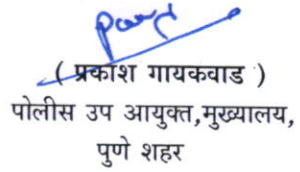 ( प्रकाश गायकवाड )
पोलीस उप आयुक्त,मुख्यालय,
पुणे शहर